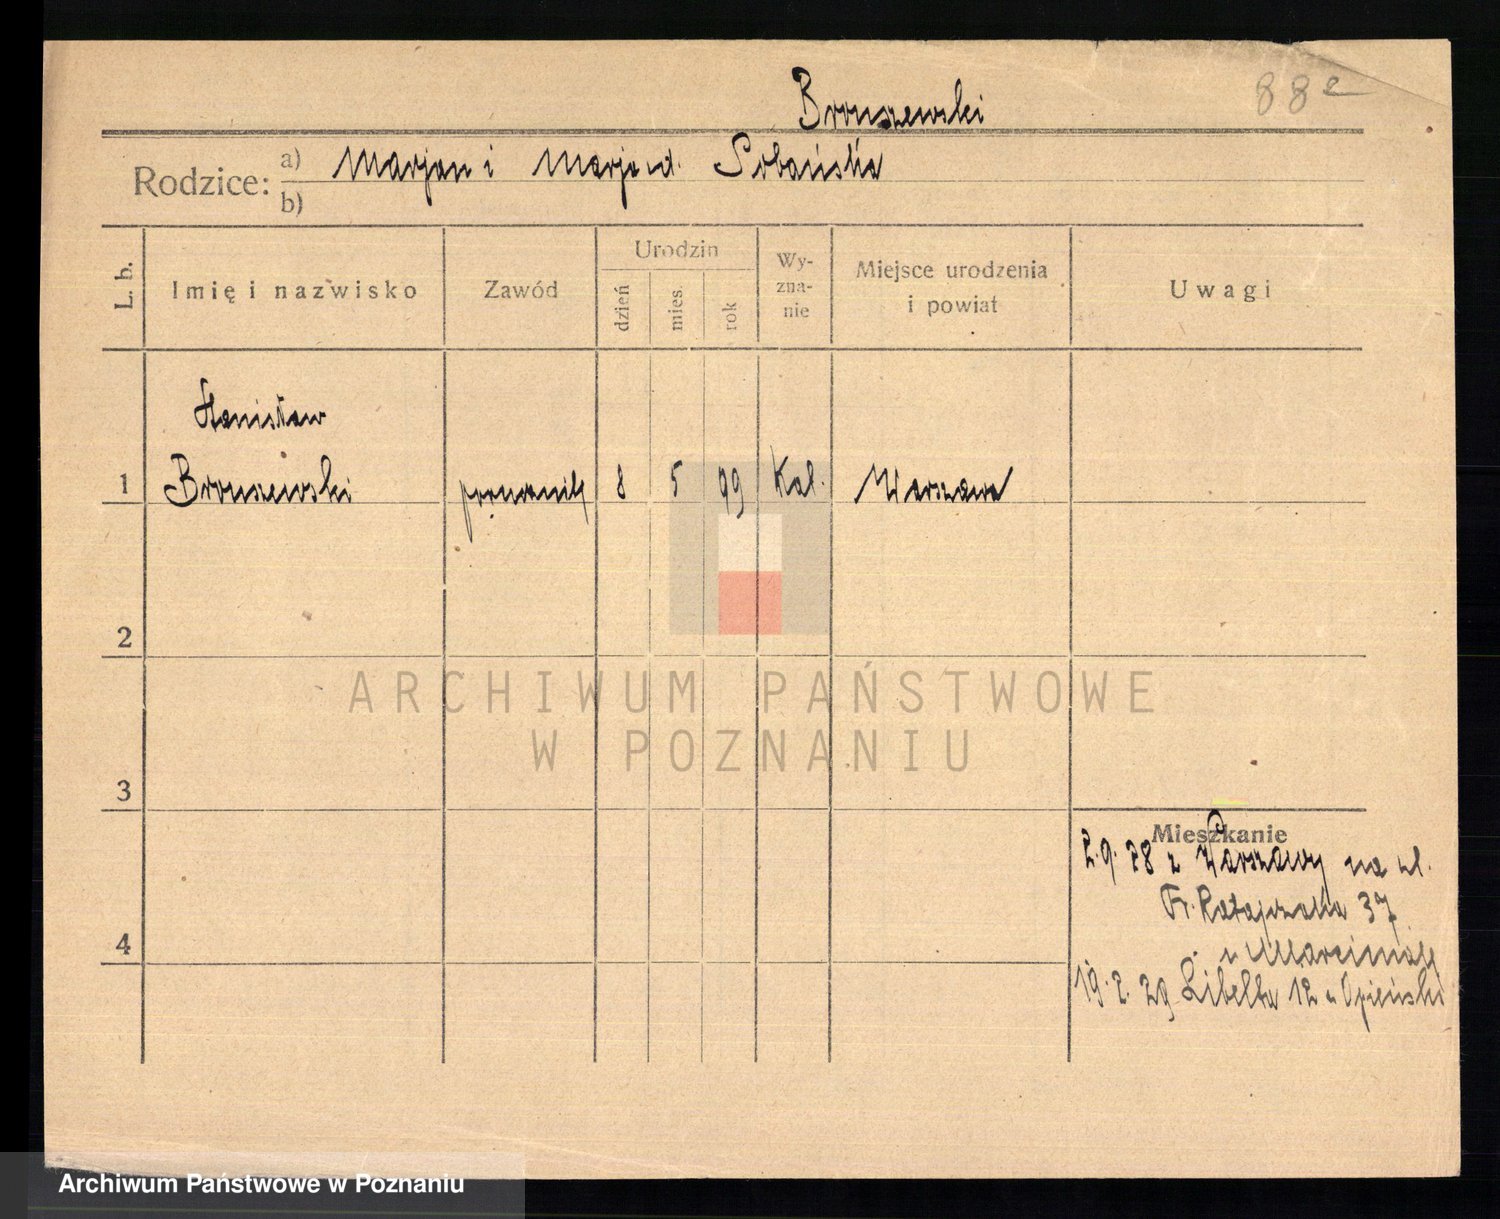 88e
Bruszewski
Rodzice: a) Marjan i Marja ud. Sobańska
b)
L. b.
Imię i nazwisko
Zawód
Urodzin
dzień
mies.
rok
Wy-
zna-
nie
Miejsce urodzenia
i powiat
Uwagi
Stanisław
1 Bruszewski 8 5 99 Kat. Warszawa
2
ARCHIWUM PAŃSTWOWE
W POZNANIU
3
Mieszkanie
2.9.28 z Warszawy na ul.
Fr. Ratajczaka 37
u
4
19.2.29 Libelta 12 u Opieński
Archiwum Państwowe w Poznaniu